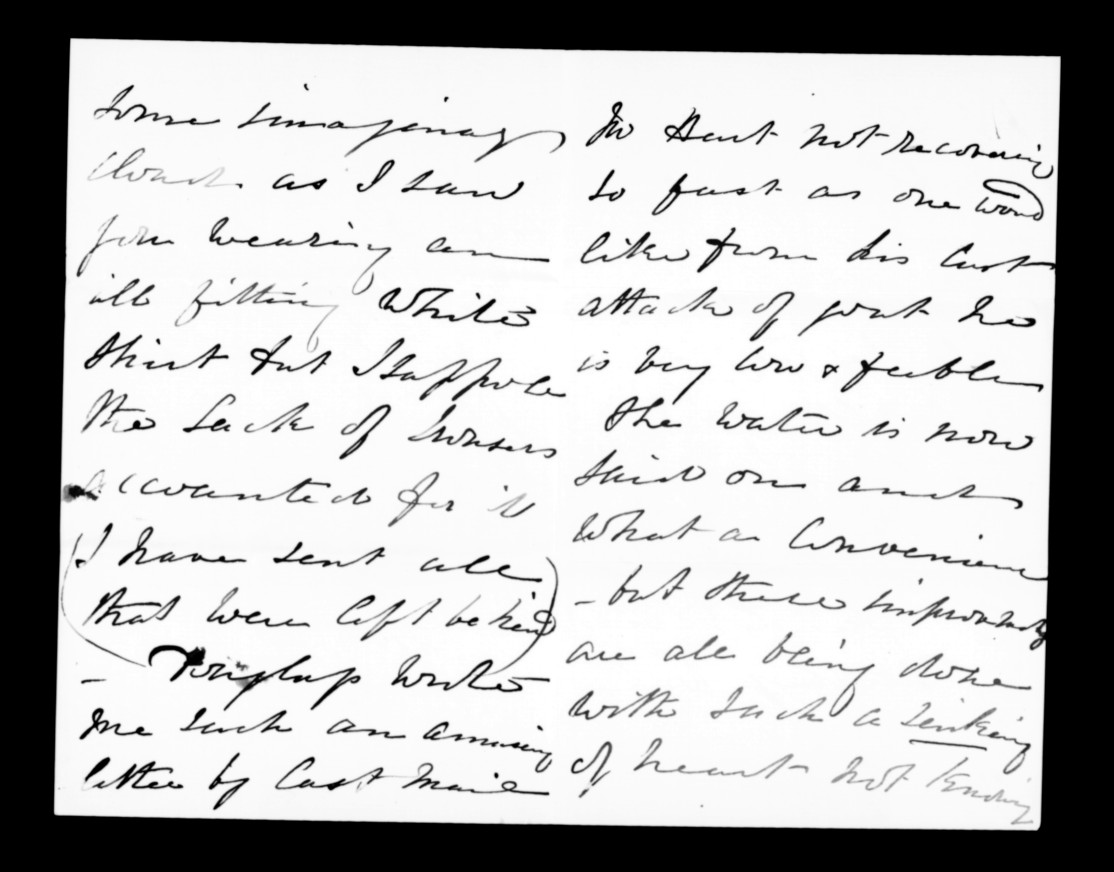 some imaginary
cloud as I saw
you wearing an
ill fitting white
shirt but I suppose
the lack of trousers
accounted for it
(I have sent all
that were left behind)
- Douglas wrote
me such an amusing
letter by last mail
Mr Hart not recovering
so fast as one would
like from his last
attack of gout he
is very low & feeble
The water is now
laid on and
what a convenience
- but these improvements
are all being done
with such a sinking
of heart not knowing